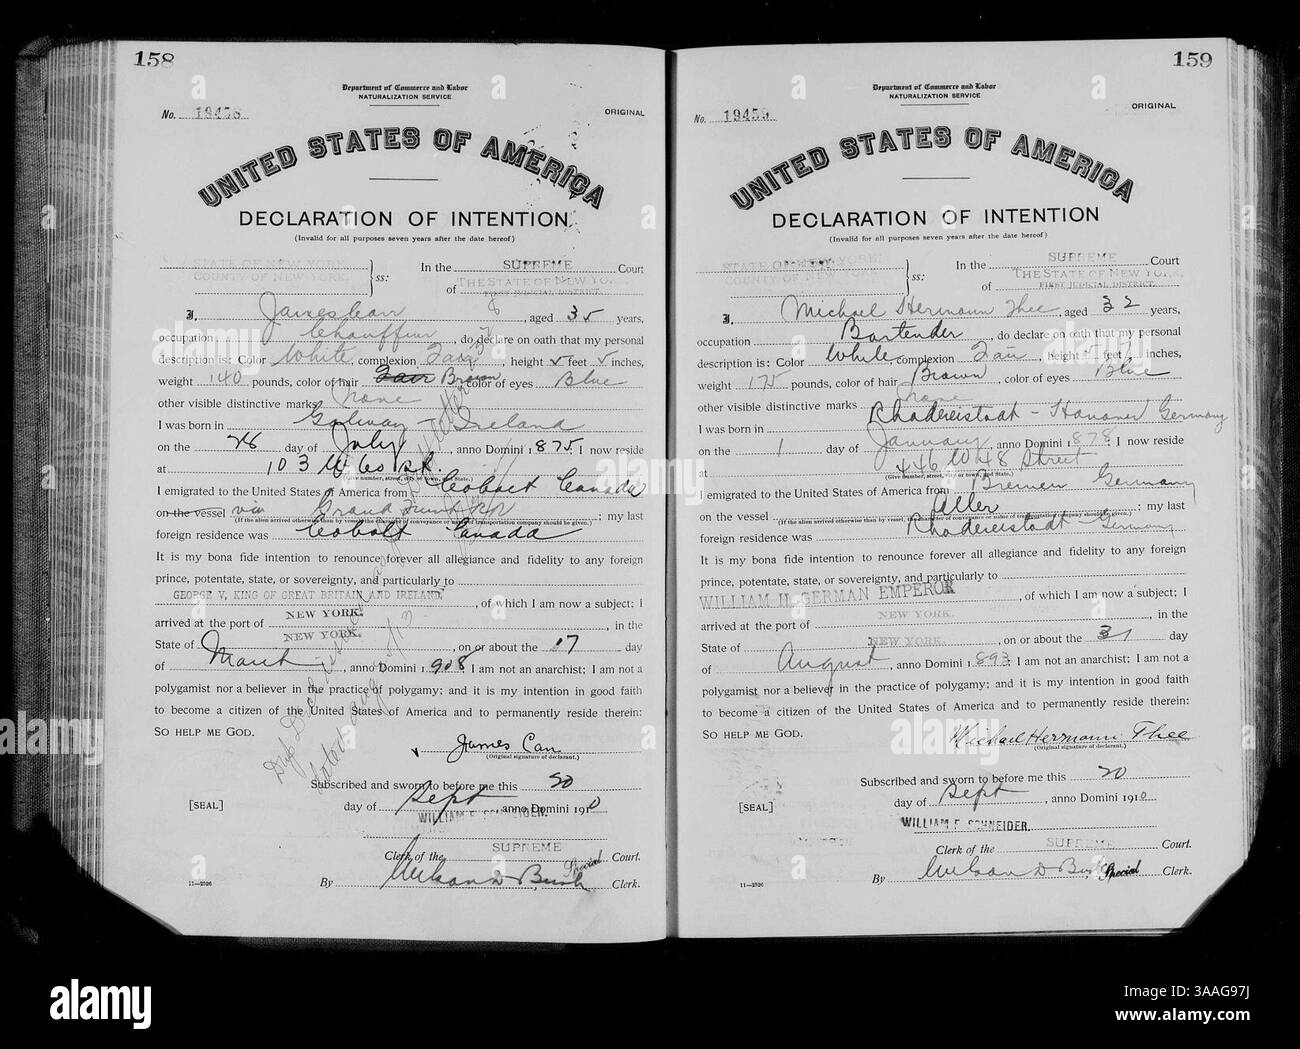 158
Department of Commerce and Labor
NATURALIZATION SERVICE
No. 19458
ORIGINAL
UNITED STATES OF AMERICA
DECLARATION OF INTENTION
(Invalid for all purposes seven years after the date hereof)
STATE OF NEW YORK
COUNTY OF NEW YORK
ss:
In the SUPREME Court
of THE STATE OF NEW YORK
FIRST JUDICIAL DISTRICT.
I, James Carr, aged 35 years,
occupation Chauffeur, do declare on oath that my personal
description is: Color White, complexion Fair, height 5 feet 5 inches,
weight 140 pounds, color of hair Fair Brown color of eyes Blue
other visible distinctive marks None
I was born in Galway - Ireland
on the 28 day of July, anno Domini 1875; I now reside
at 103 W 60 st.
(Give number, street, city or town, and State.)
I emigrated to the United States of America from Cobolt Canada
on the vessel via Grand Trunk RR; my last
(If the alien arrived otherwise than by vessel, the character of conveyance or name of transportation company should be given.)
foreign residence was Cobolt Canada
It is my bona fide intention to renounce forever all allegiance and fidelity to any foreign
prince, potentate, state, or sovereignty, and particularly to
GEORGE V, KING OF GREAT BRITAIN AND IRELAND, of which I am now a subject; I
arrived at the port of NEW YORK, in the
State of NEW YORK, on or about the 17 day
of March, anno Domini 1908 I am not an anarchist; I am not a
polygamist nor a believer in the practice of polygamy; and it is my intention in good faith
to become a citizen of the United States of America and to permanently reside therein:
SO HELP ME GOD.
James Carr
(Original signature of declarant.)
Subscribed and sworn to before me this 20
[SEAL] day of Sept, anno Domini 1910
WILLIAM F. SCHNEIDER.
Clerk of the SUPREME Court.
By Wilson D Bush Special Clerk.
11—2026
159
Department of Commerce and Labor
NATURALIZATION SERVICE
No. 19459
ORIGINAL
UNITED STATES OF AMERICA
DECLARATION OF INTENTION
(Invalid for all purposes seven years after the date hereof)
STATE OF NEW YORK
COUNTY OF NEW YORK
ss:
In the SUPREME Court
of THE STATE OF NEW YORK
FIRST JUDICIAL DISTRICT.
I, Michael Hermann Thee, aged 32 years,
occupation Bartender, do declare on oath that my personal
description is: Color White, complexion Fair, height 5 feet 7 inches,
weight 175 pounds, color of hair Brown, color of eyes Blue
other visible distinctive marks none
I was born in Rhadereistadt - Hanover Germany
on the 1 day of January, anno Domini 1878; I now reside
at 446 W 48 Street
(Give number, street, city or town, and State.)
I emigrated to the United States of America from Bremen Germany
on the vessel Aller; my last
(If the alien arrived otherwise than by vessel, the character of conveyance or name of transportation company should be given.)
foreign residence was Rhadereistadt Germany
It is my bona fide intention to renounce forever all allegiance and fidelity to any foreign
prince, potentate, state, or sovereignty, and particularly to
WILLIAM II, GERMAN EMPEROR, of which I am now a subject; I
arrived at the port of NEW YORK, in the
State of NEW YORK, on or about the 31 day
of August, anno Domini 1893 I am not an anarchist; I am not a
polygamist nor a believer in the practice of polygamy; and it is my intention in good faith
to become a citizen of the United States of America and to permanently reside therein:
SO HELP ME GOD.
Michael Hermann Thee
(Original signature of declarant.)
Subscribed and sworn to before me this 20
[SEAL] day of Sept, anno Domini 1910
WILLIAM F. SCHNEIDER.
Clerk of the SUPREME Court.
By Wilson D Bush Special Clerk.
11—2026
alamy
Image ID: 3AAG97J
www.alamy.com